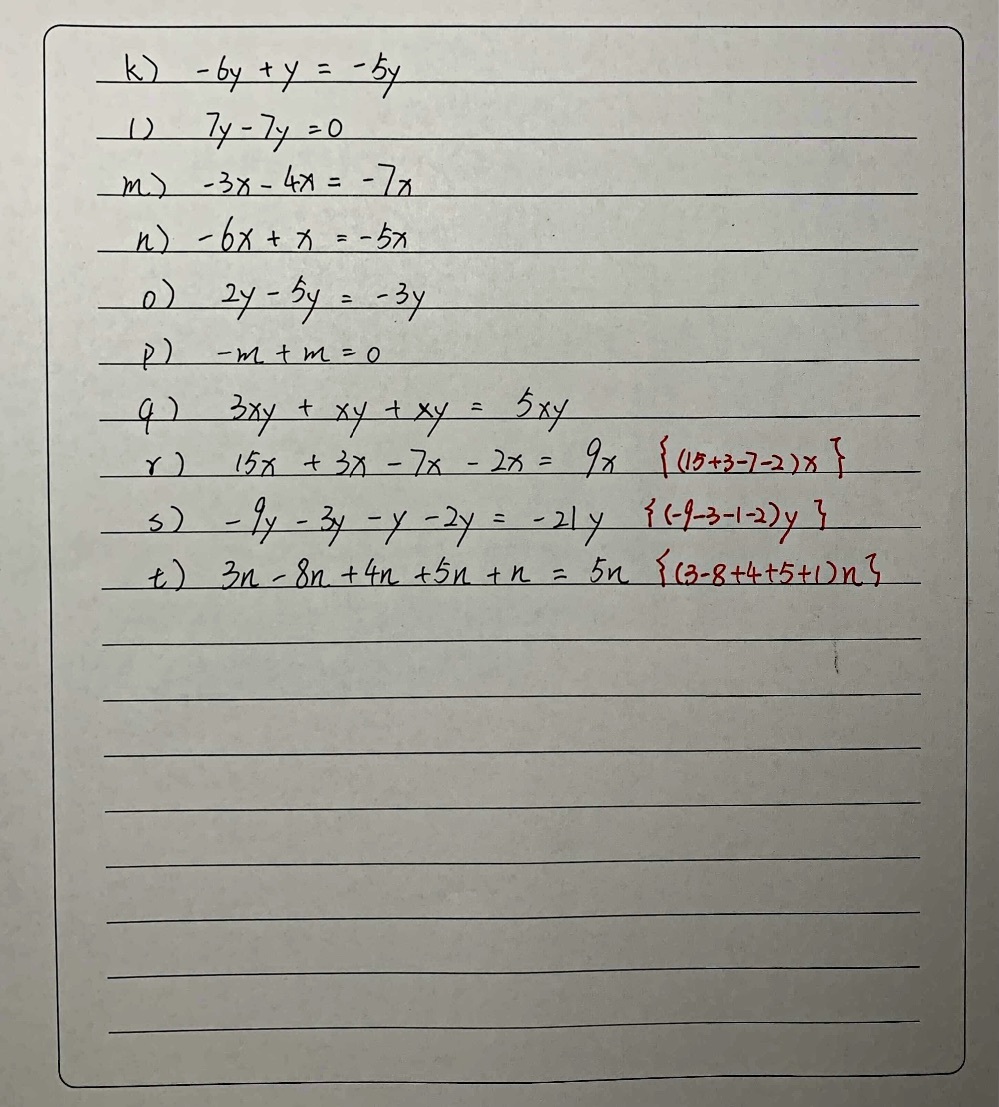 k) -6y + y = -5y
l) 7y - 7y = 0
m) -3x - 4x = -7x
n) -6x + x = -5x
o) 2y - 5y = -3y
p) -m + m = 0
q) 3xy + xy + xy = 5xy
r) 15x + 3x - 7x - 2x = 9x {(15+3-7-2)x}
s) -9y - 3y - y - 2y = -21y {(-9-3-1-2)y}
t) 3n - 8n + 4n + 5n + n = 5n {(3-8+4+5+1)n}